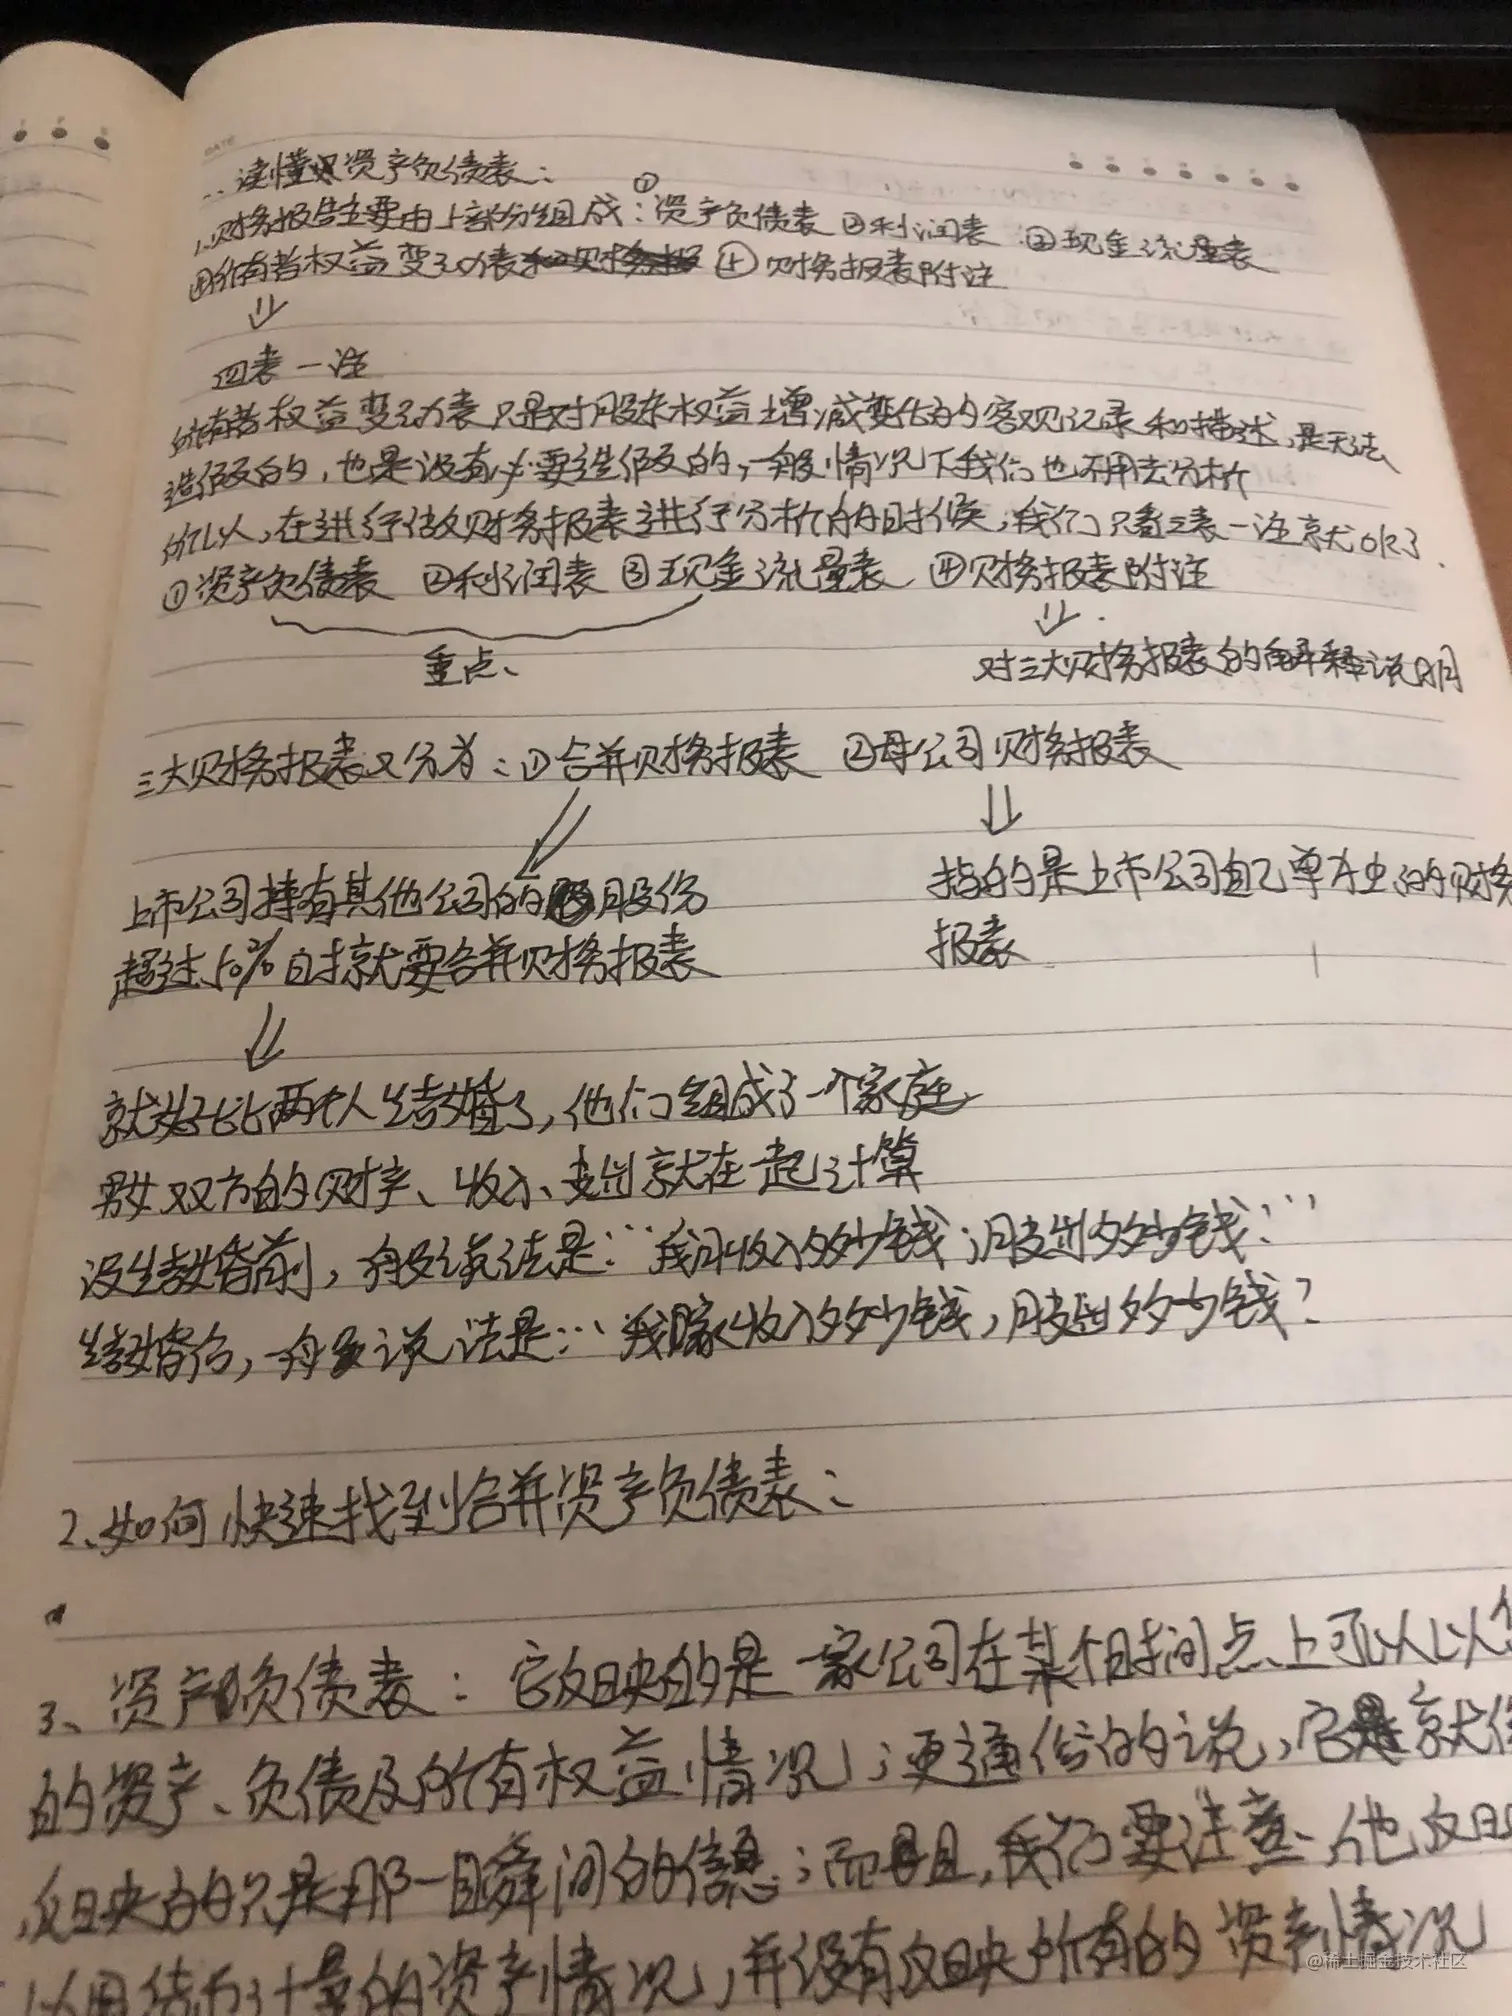 DATE
一、读懂资产负债表：
1、财务报告主要由上部份组成：①资产负债表 ②利润表 ③现金流量表
④所有者权益变动表 ④财务报表附注
四表一注
所有者权益变动表只是对股东权益增减变化的客观记录和描述，是无法
造假的，也是没有必要造假的，一般情况下我们也不用去分析
所以，在进行做财务报表进行分析的时候，我们只看三表一注就ok了
①资产负债表 ②利润表 ③现金流量表 ④财务报表附注
重点、
对三大财务报表的解释说明
三大财务报表又分为：①合并财务报表 ②母公司财务报表
上市公司持有其他公司的股份
超过50%时就要合并财务报表
指的是上市公司自己单独的财务
报表
就好比两个人结婚了，他们组成了一个家庭
男女双方的财产、收入、支出就在一起计算
没结婚前，一般说法是：“我月收入多少钱；月支出多少钱：”
结婚后，一般说法是：“我家收入多少钱，月支出多少钱？
2、如何快速找到合并资产负债表：
3、资产负债表：它反映的是一家公司在某个时间点上可以以
的资产、负债及所有权益情况；更通俗的说，它就
反映的只是那一瞬间的信息；而且，我们要注意、他反映
以用货币计量的资产情况，并没有反映所有的资产情况
@稀土掘金技术社区